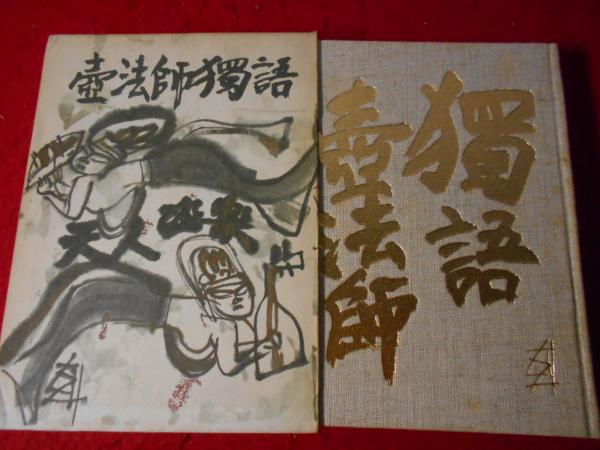 壺法師獨語
天人遊楽
獨語
壺法師